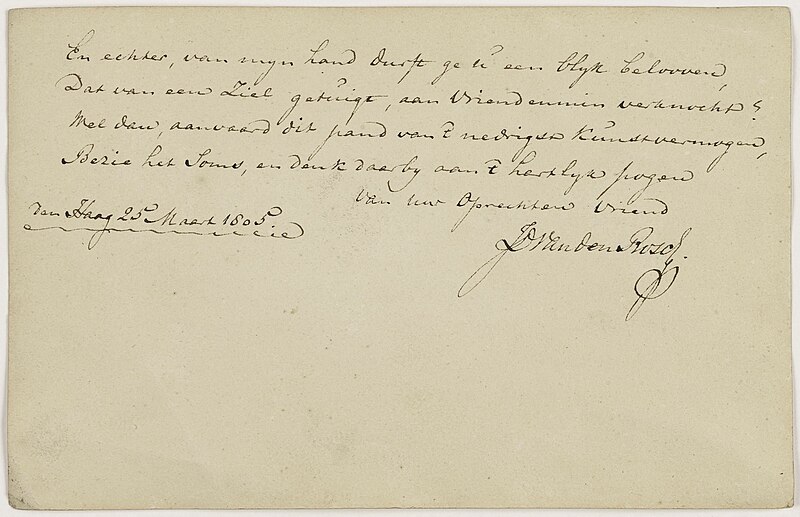 En echter, van mijn hand durft ge u een blyk belooven,
Dat van een Ziel getuigt, aan Vriendenmin verknocht?
Wel dan, aanvaard dit pand van 't nedrigst Kunstvermogen,
Bezie het Soms, en denk daarby aan 't hartlyk pogen
Van uw Oprechten Vriend
den Haag 25 Maart 1805
Van den Bosch.